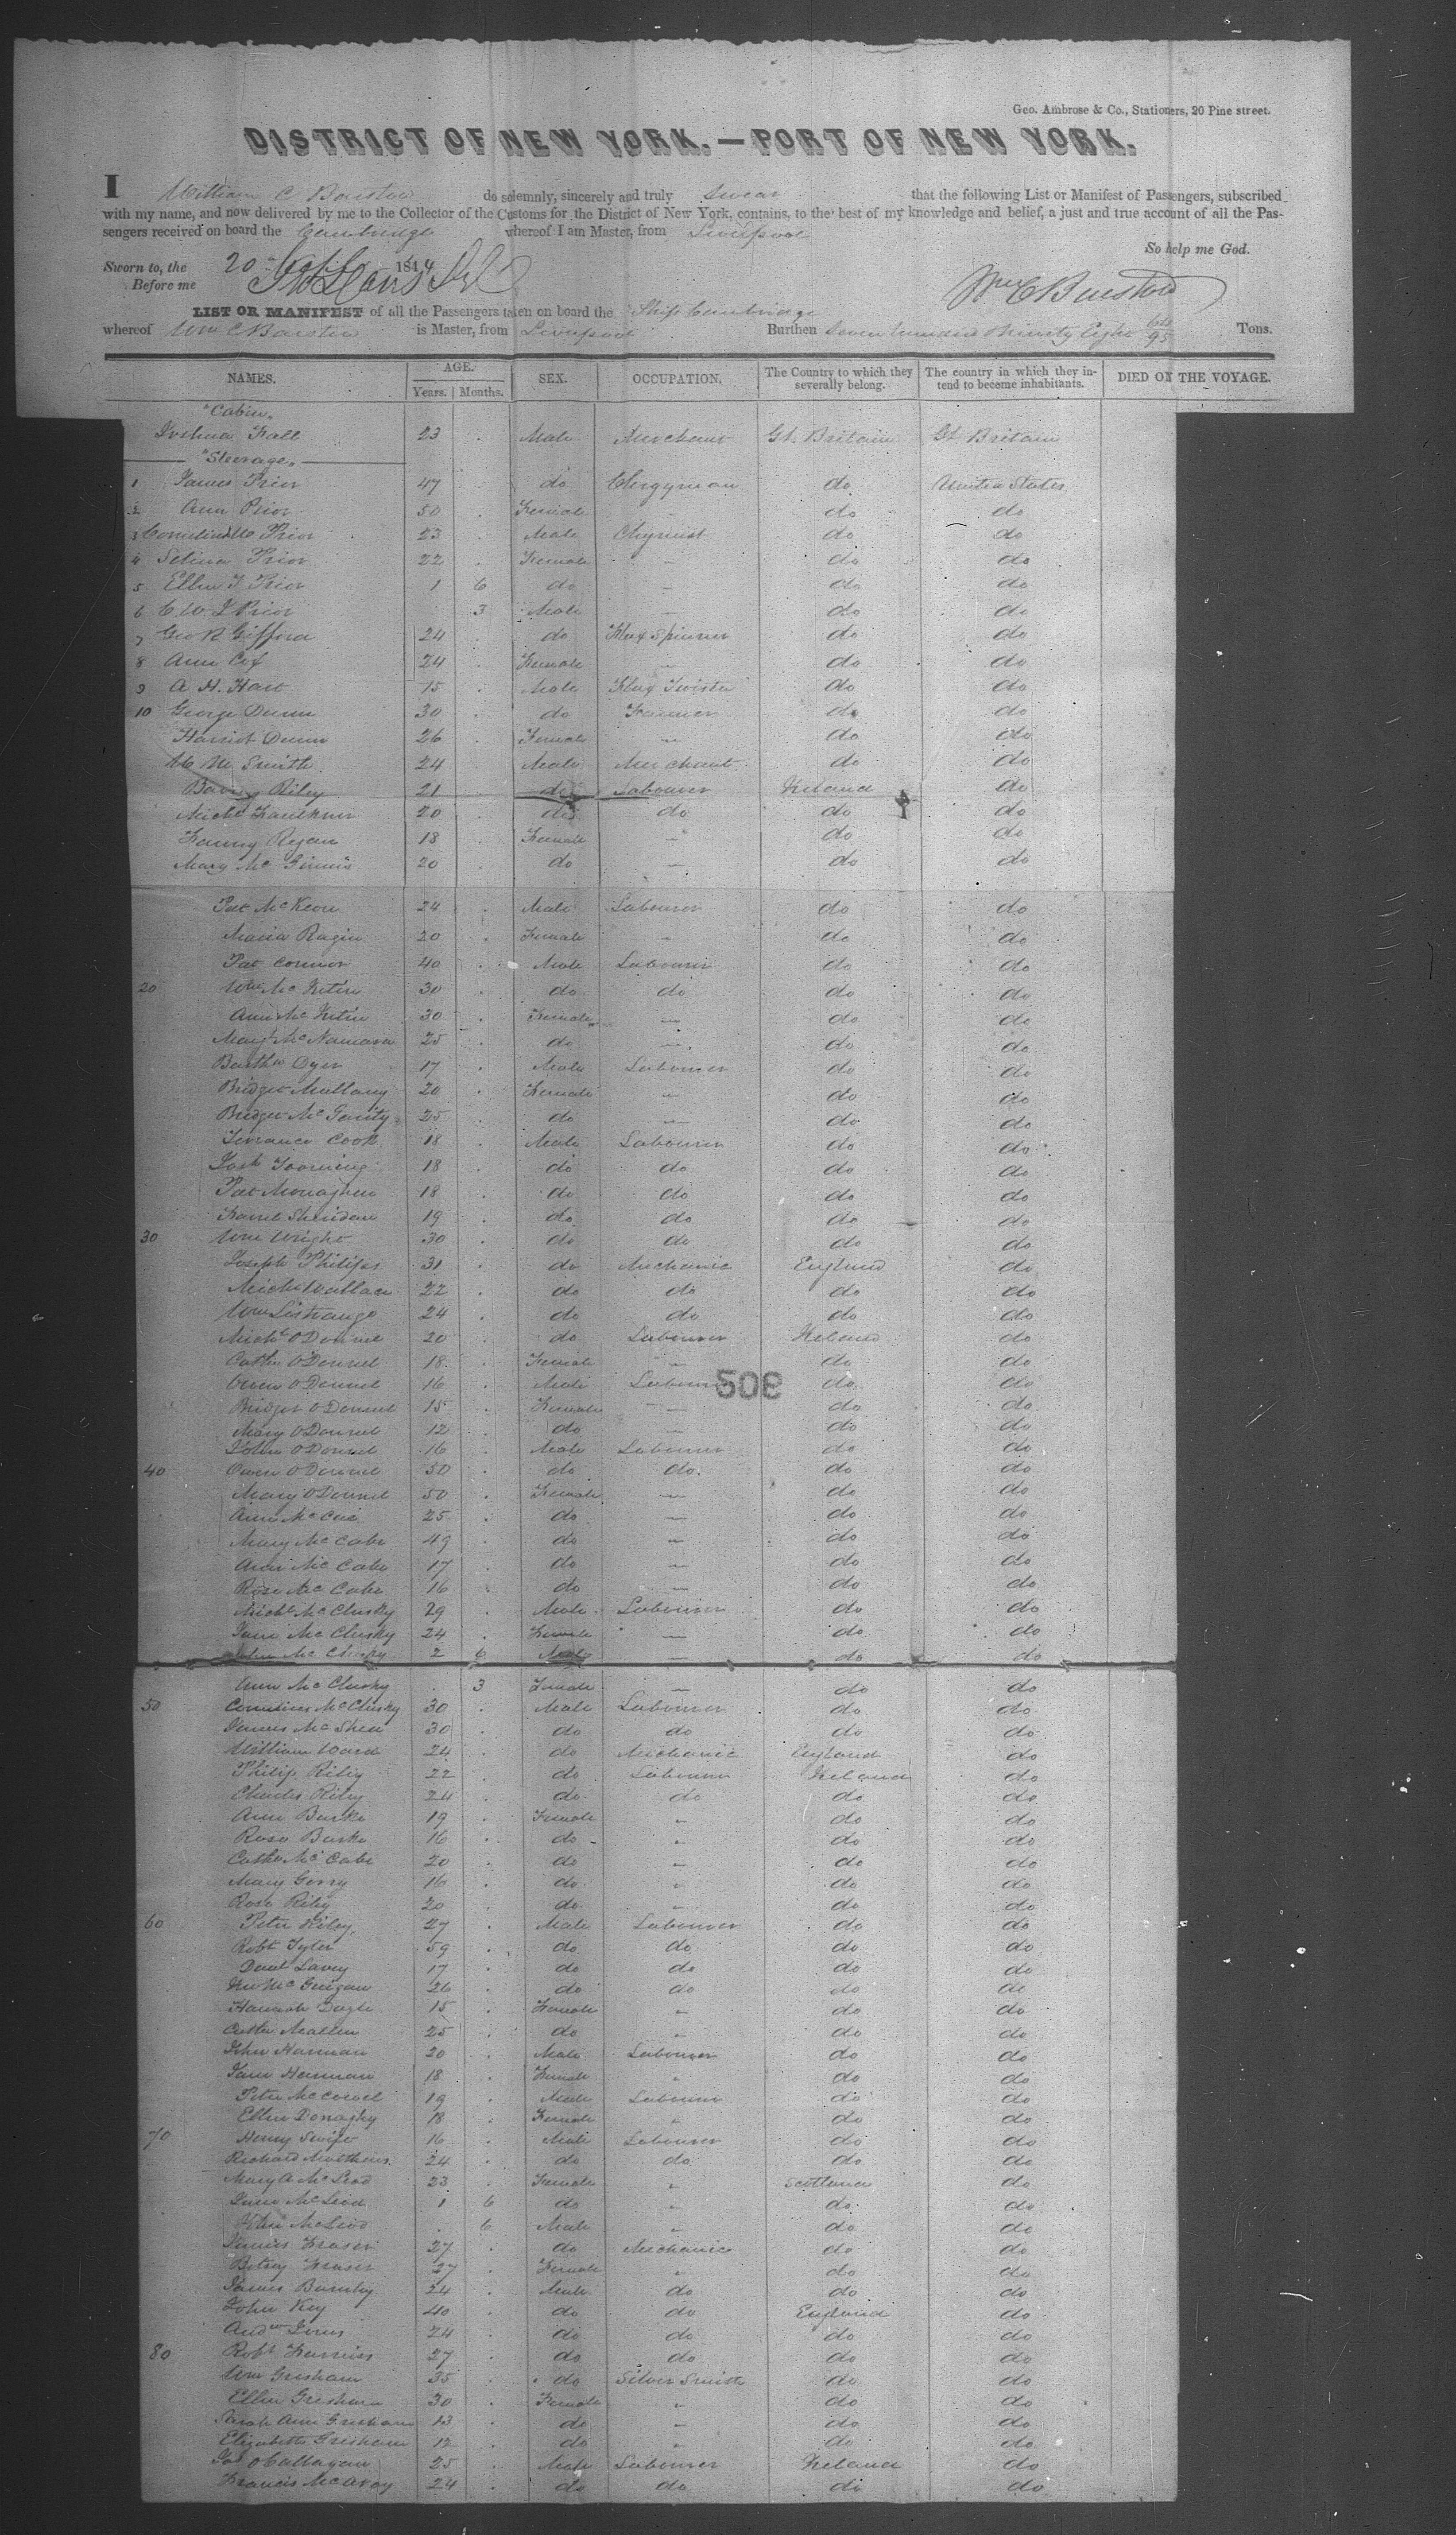 Geo. Ambrose & Co., Stationers, 20 Pine street.
DISTRICT OF NEW YORK.—PORT OF NEW YORK.
I William C Barstow do solemnly, sincerely and truly swear that the following List or Manifest of Passengers, subscribed
with my name, and now delivered by me to the Collector of the Customs for the District of New York, contains, to the best of my knowledge and belief, a just and true account of all the Pas-
sengers received on board the Cambridge whereof I am Master, from Liverpool
So help me God.
Sworn to, the 20 184
Before me
Wm C Barstow
LIST OR MANIFEST of all the Passengers taken on board the Ship Cambridge
whereof Wm C Barstow is Master, from Liverpool Burthen Seven hundred Ninety Eight 64/95 Tons.
NAMES. AGE. Years. Months. SEX. OCCUPATION. The Country to which they severally belong. The country in which they intend to become inhabitants. DIED ON THE VOYAGE.
"Cabin"
Joshua Fall 23 . Male Merchant Gt. Britain Gt Britain
"Steerage"
1 James Prior 47 do Clergyman do United States
2 Ann Prior 50 . Female do do
3 Prior 23 . Male Chymist do do
4 Selina Prior 22 . Female — do do
5 Ellen J Prior 1 6 do — do do
6 C. W. J Prior 3 Male — do do
7 Geo R Gifford 24 . do Flax Spinner do do
8 Ann Cox 24 . Female — do do
9 A H. Hart 15 . Male Flax do do
10 George Dunn 30 . do Farmer do do
Harriot Dunn 26 . Female — do do
M Smith 24 . Male Merchant do do
Riley 21 . do Labourer Ireland do
Michl Faulkner 20 . do do do do
Fanny Regan 18 . Female — do do
Mary Mc Ginnis 20 . do — do do
Pat McKeon 24 . Male Labourer do do
Maria Ragin 20 . Female — do do
Pat Connor 40 . Male Labourer do do
20 Wm Mc 30 . do do do do
Ann Mc 30 . Female — do do
Margt McNamara 25 . do — do do
Barthw 17 . Male Labourer do do
Bridget Mullany 20 . Female — do do
Bridget McGarity 25 . do — do do
Terrance Cook 18 . Male Labourer do do
18 . do do do do
Pat Monaghan 18 . do do do do
Farrel Sheridan 19 . do do do do
30 Wm Wright 30 . do do do do
Joseph Philips 31 . do Mechanic England do
Michl Wallace 22 . do do do do
Wm Listrange 24 . do do do do
Michl O'Donnel 20 . do Labourer Ireland do
Cathn O'Donnel 18 . Female — do do
Owen O'Donnel 16 . Male Labourer do do
508
Bridget O'Donnel 15 . Female — do do
Mary O'Donnel 12 . do — do do
John O'Donnel 16 . Male Labourer do do
40 Owen O'Donnel 50 . do do do do
Mary O'Donnel 50 . Female — do do
Ann Mc 25 . do — do do
Mary McCabe 49 . do — do do
Ann McCabe 17 . do — do do
Rose McCabe 16 . do — do do
Michl McClusky 29 . Male Labourer do do
Jane McClusky 24 . Female — do do
John McClusky 2 6 Male — do do
Ann McClusky . 3 Female — do do
50 Cornelius McClusky 30 . Male Labourer do do
James McShea 30 . do do do do
William Ward 24 . do Mechanic England do
Philip Riley 22 . do Labourer Ireland do
Charles Riley 24 . do do do do
Ann Burke 19 . Female — do do
Rose Burke 16 . do — do do
Cathn McCabe 20 . do — do do
Mary Gorry 16 . do — do do
Rose Riley 20 . do — do do
60 Peter Riley 27 . Male Labourer do do
Robt Tyler 59 . do do do do
Danl Lavey 17 . do do do do
McGuigan 26 . do do do do
Hannah Doyle 15 . Female — do do
Cathn Mallen 25 . do — do do
John Hannan 20 . Male Labourer do do
Jane Hannan 18 . Female — do do
Peter 19 . Male Labourer do do
Ellen Donaghy 18 . Female — do do
70 Henry Swift 16 . Male Labourer do do
Richard Matthews 24 . do do do do
Mary A McLeod 23 . Female — Scotland do
Jane McLeod 1 6 do — do do
John McLeod . 6 Male — do do
James Fraser 27 . do Mechanic do do
Betsey Fraser 27 . Female — do do
James 24 . Male do do do
John Key 40 . do do England do
Andw 24 . do do do do
80 Robt 27 . do do do do
Wm Gresham 35 . do Silver Smith do do
Ellen Gresham 30 . Female — do do
Sarah Ann Gresham 13 . do — do do
Elizabeth Gresham 12 . do — do do
Jas O'Callagan 25 . Male Labourer Ireland do
Francis McAvoy 24 . do do do do